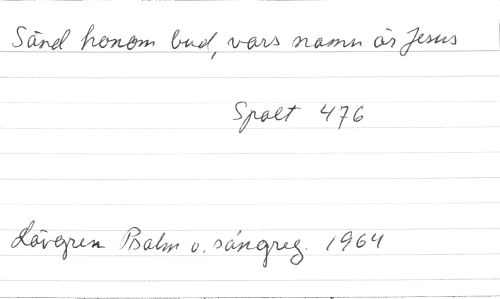 Sänd honom bud, vars namn är Jesus
Spalt 476
Lövgren Psalm o. sångreg. 1964